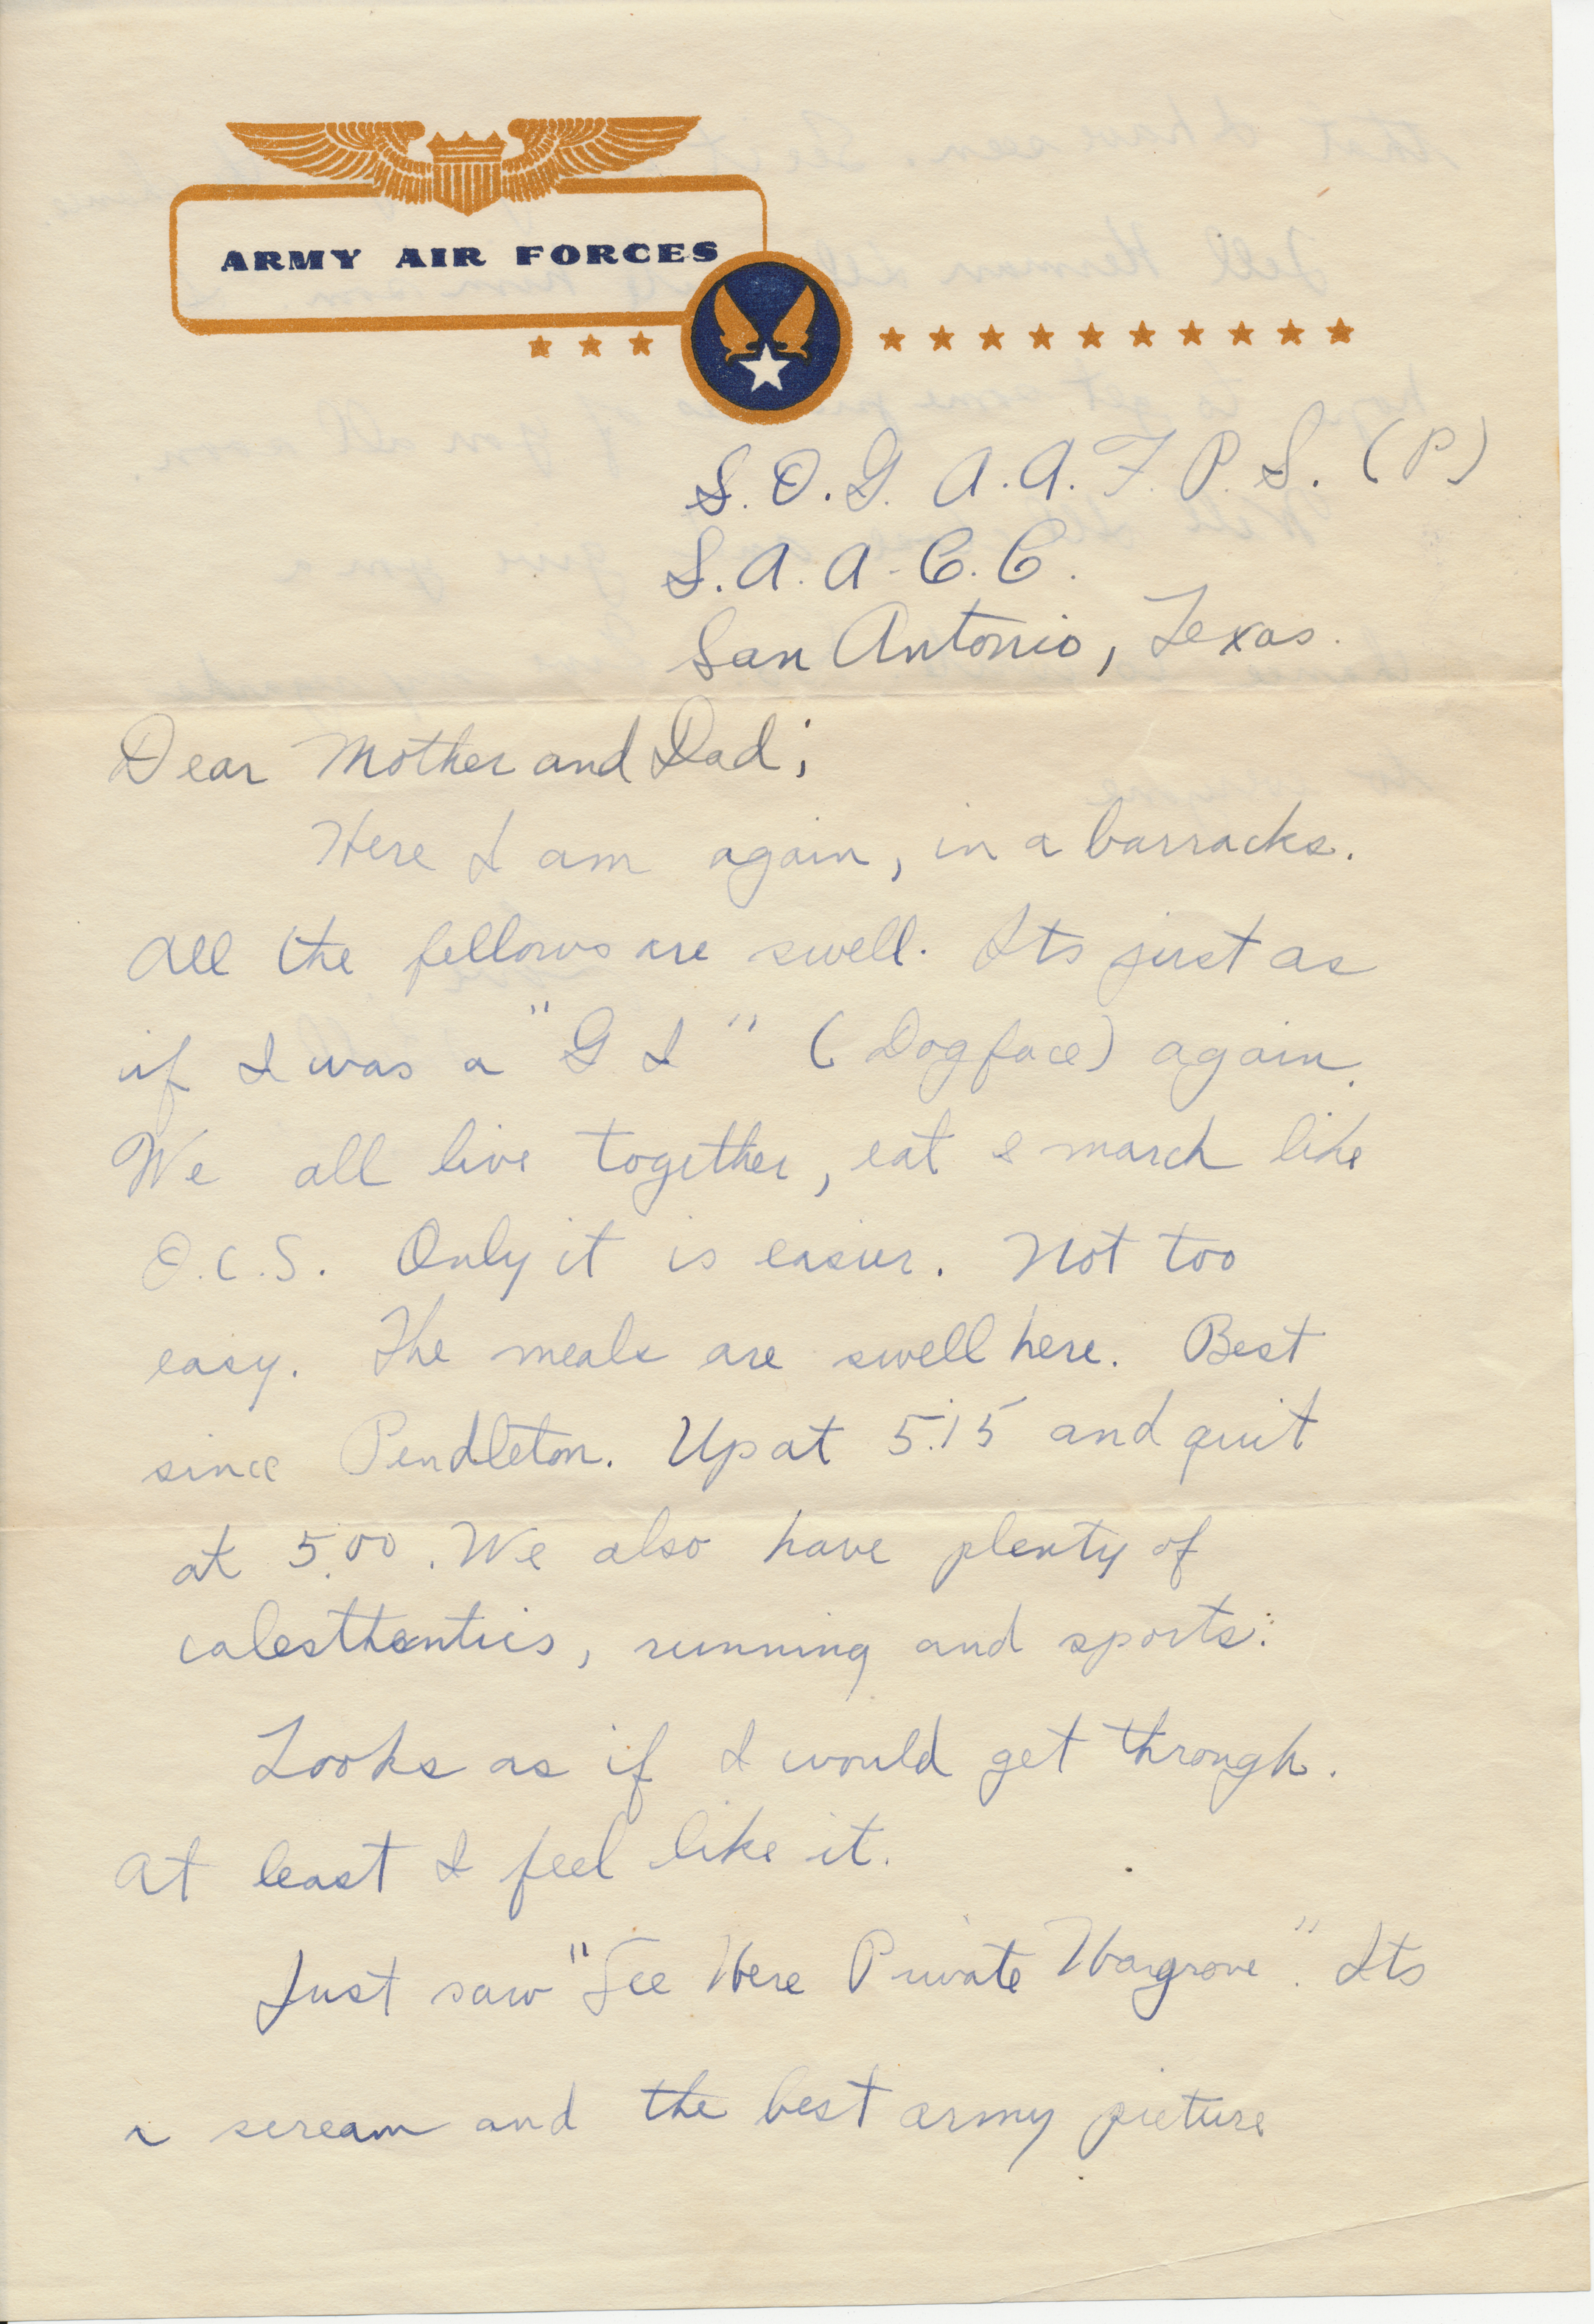 ARMY AIR FORCES
S.O.G. A.A.F.P.S. (P)
S.A.A.C.C.
San Antonio, Texas.
Dear Mother and Dad;
Here I am again, in a barracks.
All the fellows are swell. Its just as
if I was a "G I" (Dogface) again.
We all live together, eat & march like
O.C.S. Only it is easier. Not too
easy. The meals are swell here. Best
since Pendleton. Up at 5:15 and quit
at 5:00. We also have plenty of
calesthentics, running and sports.
Looks as if I would get through.
At least I feel like it.
Just saw "See Here Private Hargrove". Its
a scream and the best army picture